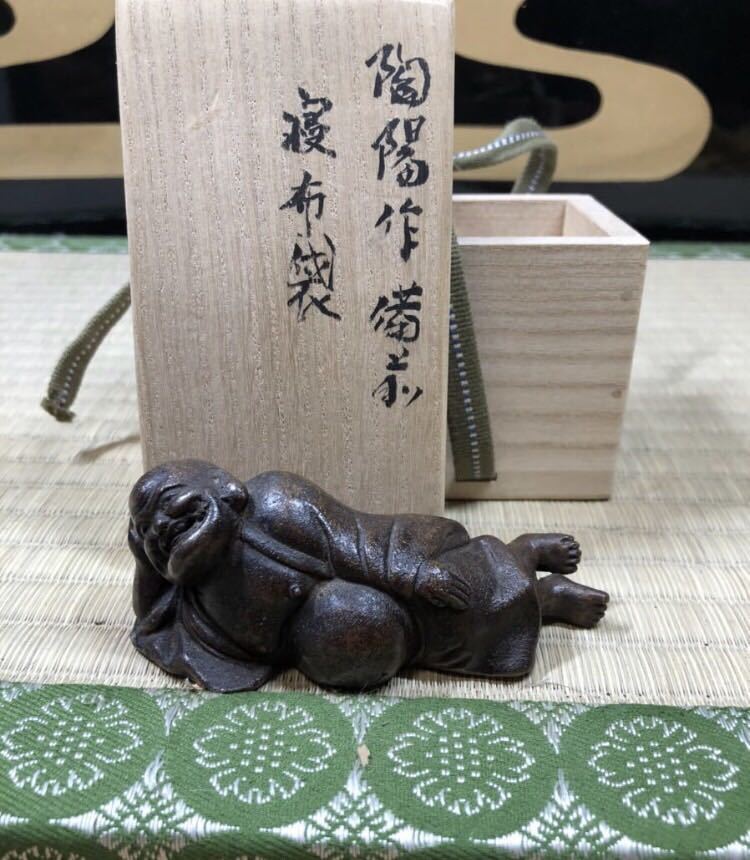 陶陽作 備前
寝布袋